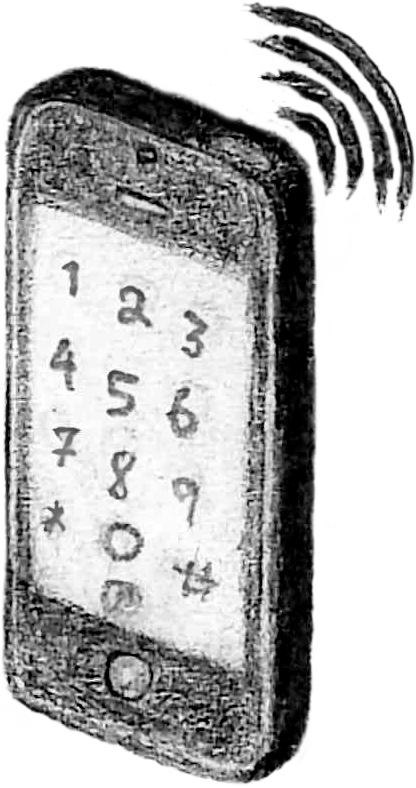 1 2 3
4 5 6
7 8 9
* 0 #